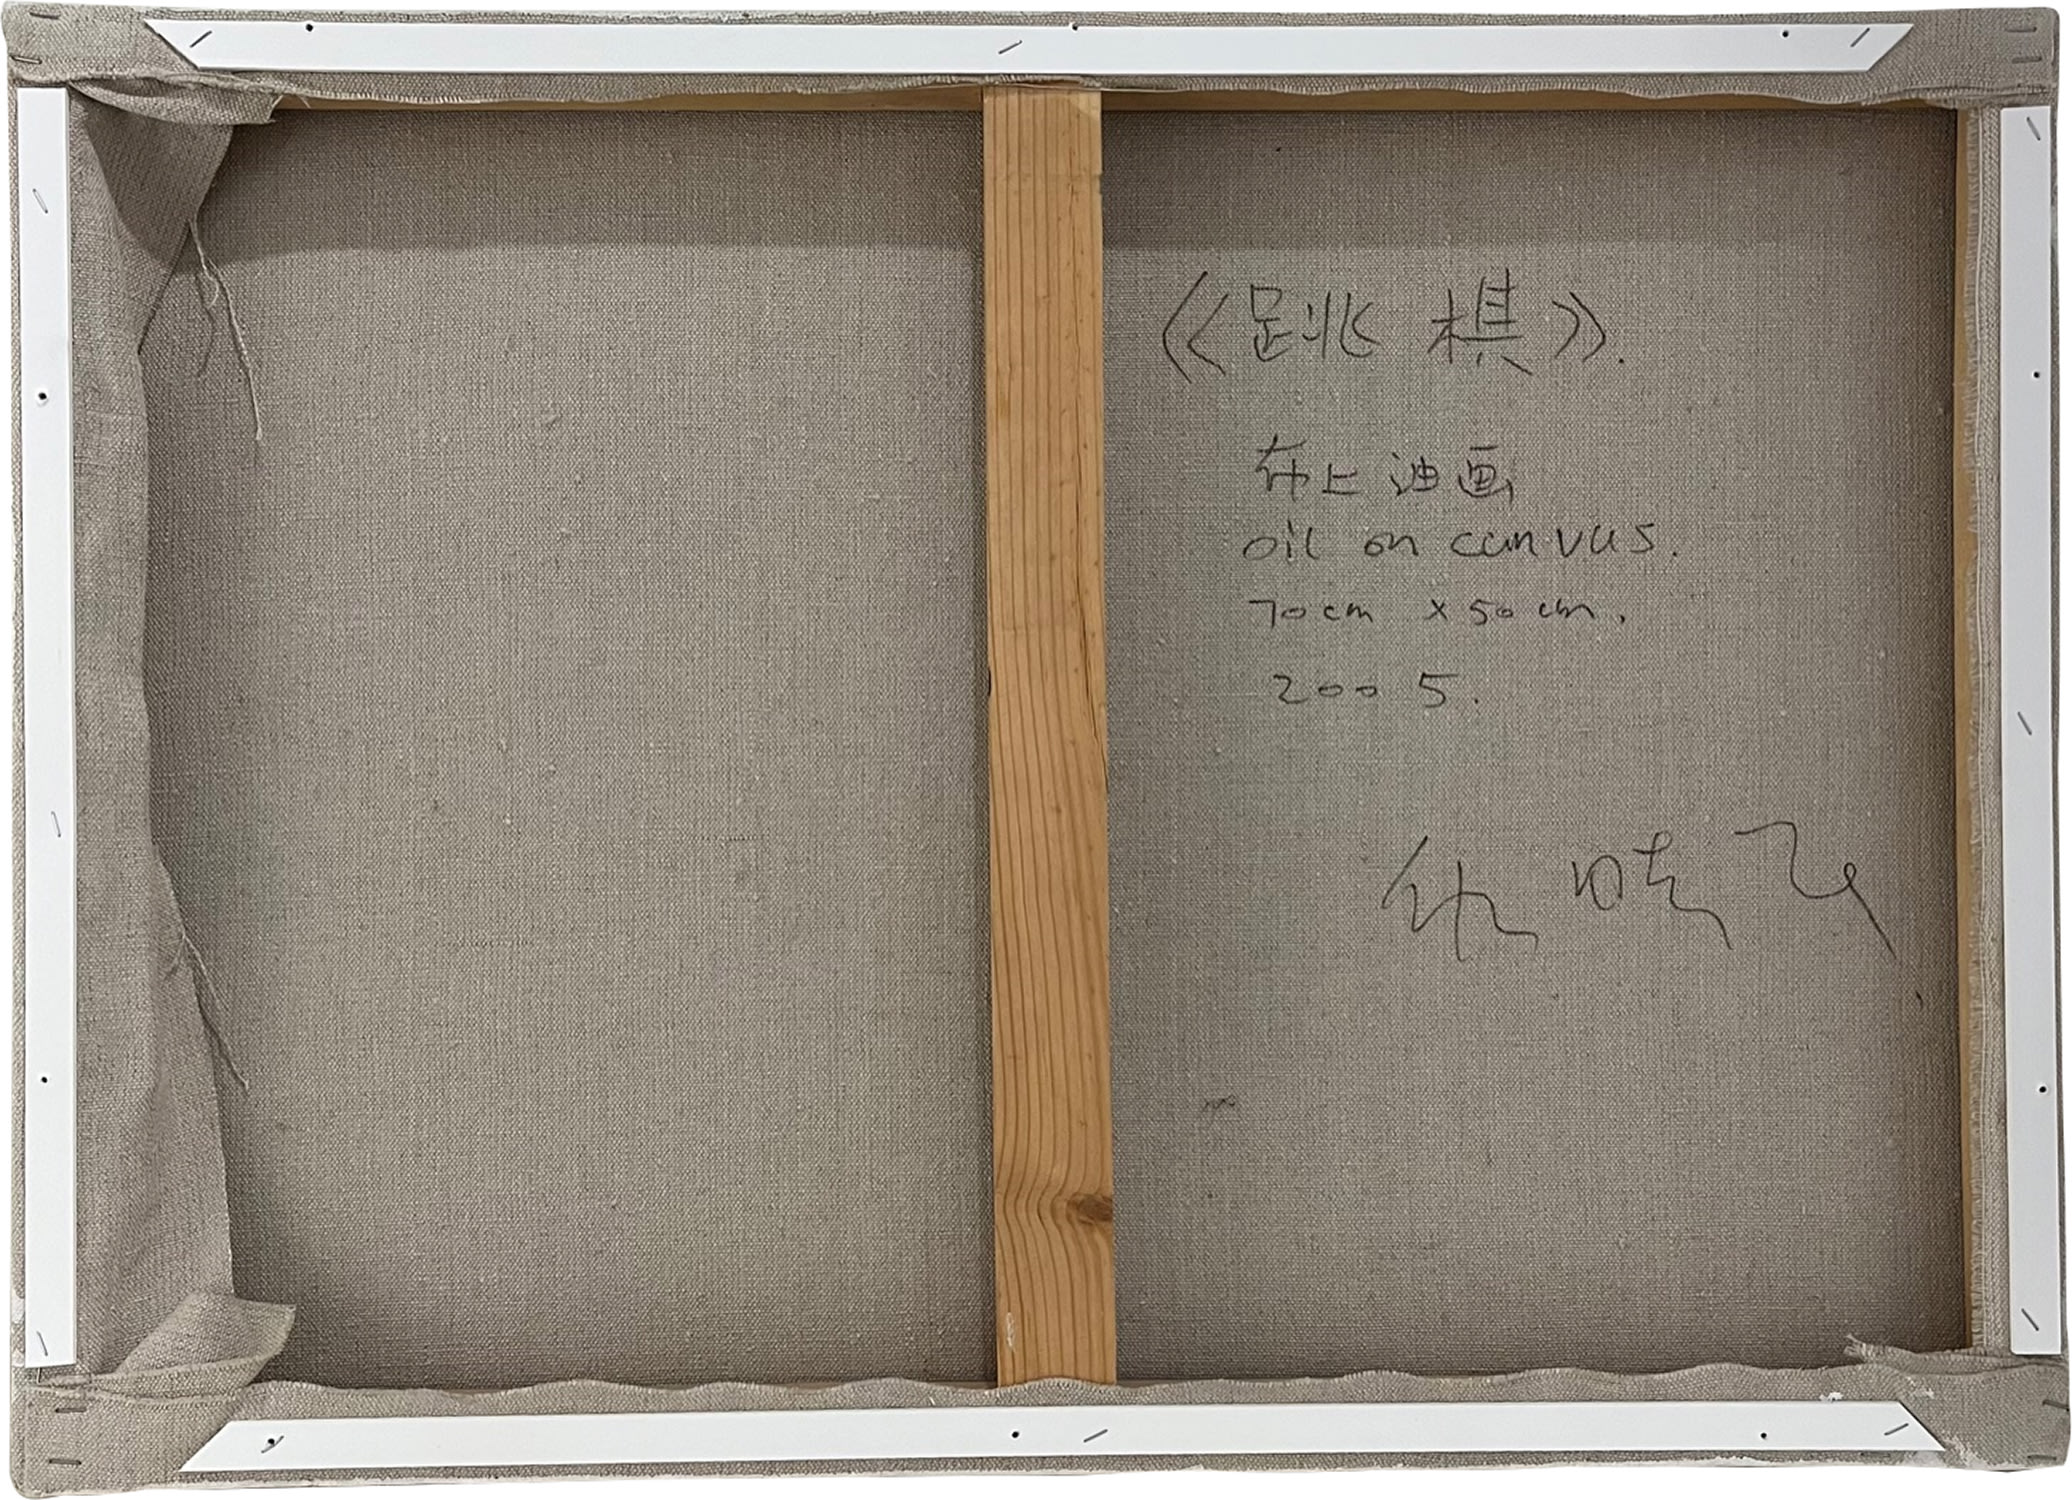 《跳棋》.
布上油画
oil on canvas.
70cm x 50 cm.
2005.
仇晓飞